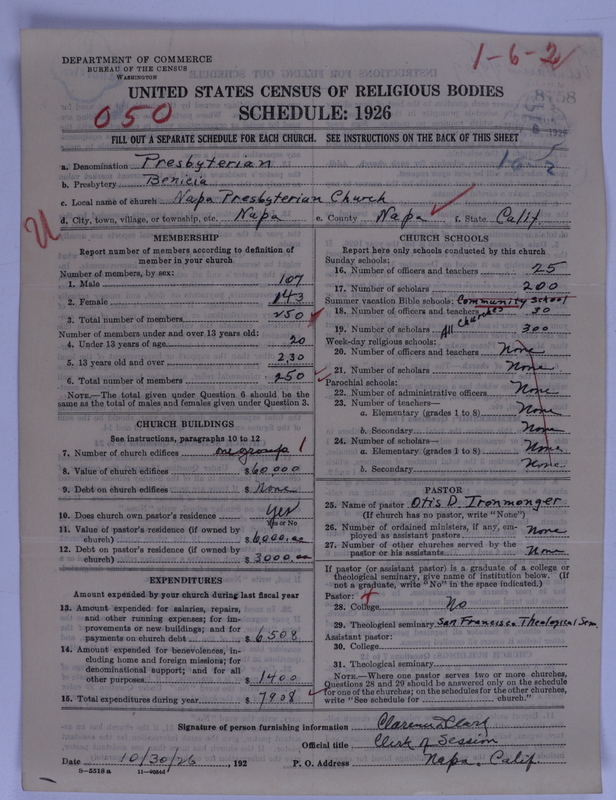 DEPARTMENT OF COMMERCE
BUREAU OF THE CENSUS
WASHINGTON
1-6-2
UNITED STATES CENSUS OF RELIGIOUS BODIES
050
SCHEDULE: 1926
FILL OUT A SEPARATE SCHEDULE FOR EACH CHURCH. SEE INSTRUCTIONS ON THE BACK OF THIS SHEET
a. Denomination Presbyterian
b. Presbytery Benicia
c. Local name of church Napa Presbyterian Church
d. City, town, village, or township, etc. Napa e. County Napa f. State Calif.
MEMBERSHIP
Report number of members according to definition of member in your church
Number of members, by sex:
1. Male 107
2. Female 143
3. Total number of members 250
Number of members under and over 13 years old:
4. Under 13 years of age 20
5. 13 years old and over 230
6. Total number of members 250
NOTE.—The total given under Question 6 should be the same as the total of males and females given under Question 3.
CHURCH BUILDINGS
See instructions, paragraphs 10 to 12
7. Number of church edifices one group 1
8. Value of church edifices $ 60,000
9. Debt on church edifices $ None
10. Does church own pastor's residence Yes
Yes or No
11. Value of pastor's residence (if owned by church) $ 6,000.00
12. Debt on pastor's residence (if owned by church) $ 3000.00
EXPENDITURES
Amount expended by your church during last fiscal year
13. Amount expended for salaries, repairs, and other running expenses; for improvements or new buildings; and for payments on church debt $ 6508
14. Amount expended for benevolences, including home and foreign missions; for denominational support; and for all other purposes $ 1400
15. Total expenditures during year $ 7908
CHURCH SCHOOLS
Report here only schools conducted by this church
Sunday schools:
16. Number of officers and teachers 25
17. Number of scholars 200
Summer vacation Bible schools: Community School
18. Number of officers and teachers 30
All Churches
19. Number of scholars 300
Week-day religious schools:
20. Number of officers and teachers None
21. Number of scholars None
Parochial schools:
22. Number of administrative officers None
23. Number of teachers—
a. Elementary (grades 1 to 8) None
b. Secondary None
24. Number of scholars—
a. Elementary (grades 1 to 8) None
b. Secondary None
PASTOR
25. Name of pastor Otis D. Ironmonger
(If church has no pastor, write "None")
26. Number of ordained ministers, if any, employed as assistant pastors None
27. Number of other churches served by the pastor or his assistants None
If pastor (or assistant pastor) is a graduate of a college or theological seminary, give name of institution below. (If not a graduate, write "No" in the space indicated.)
Pastor:
28. College No
29. Theological seminary San Francisco Theological Sem.
Assistant pastor:
30. College
31. Theological seminary
NOTE.—Where one pastor serves two or more churches, Questions 28 and 29 should be answered only on the schedule for one of the churches; on the schedules for the other churches, write "See schedule for church."
Signature of person furnishing information
Official title Clerk of Session
Date 10/30/26, 192 P. O. Address Napa, Calif.